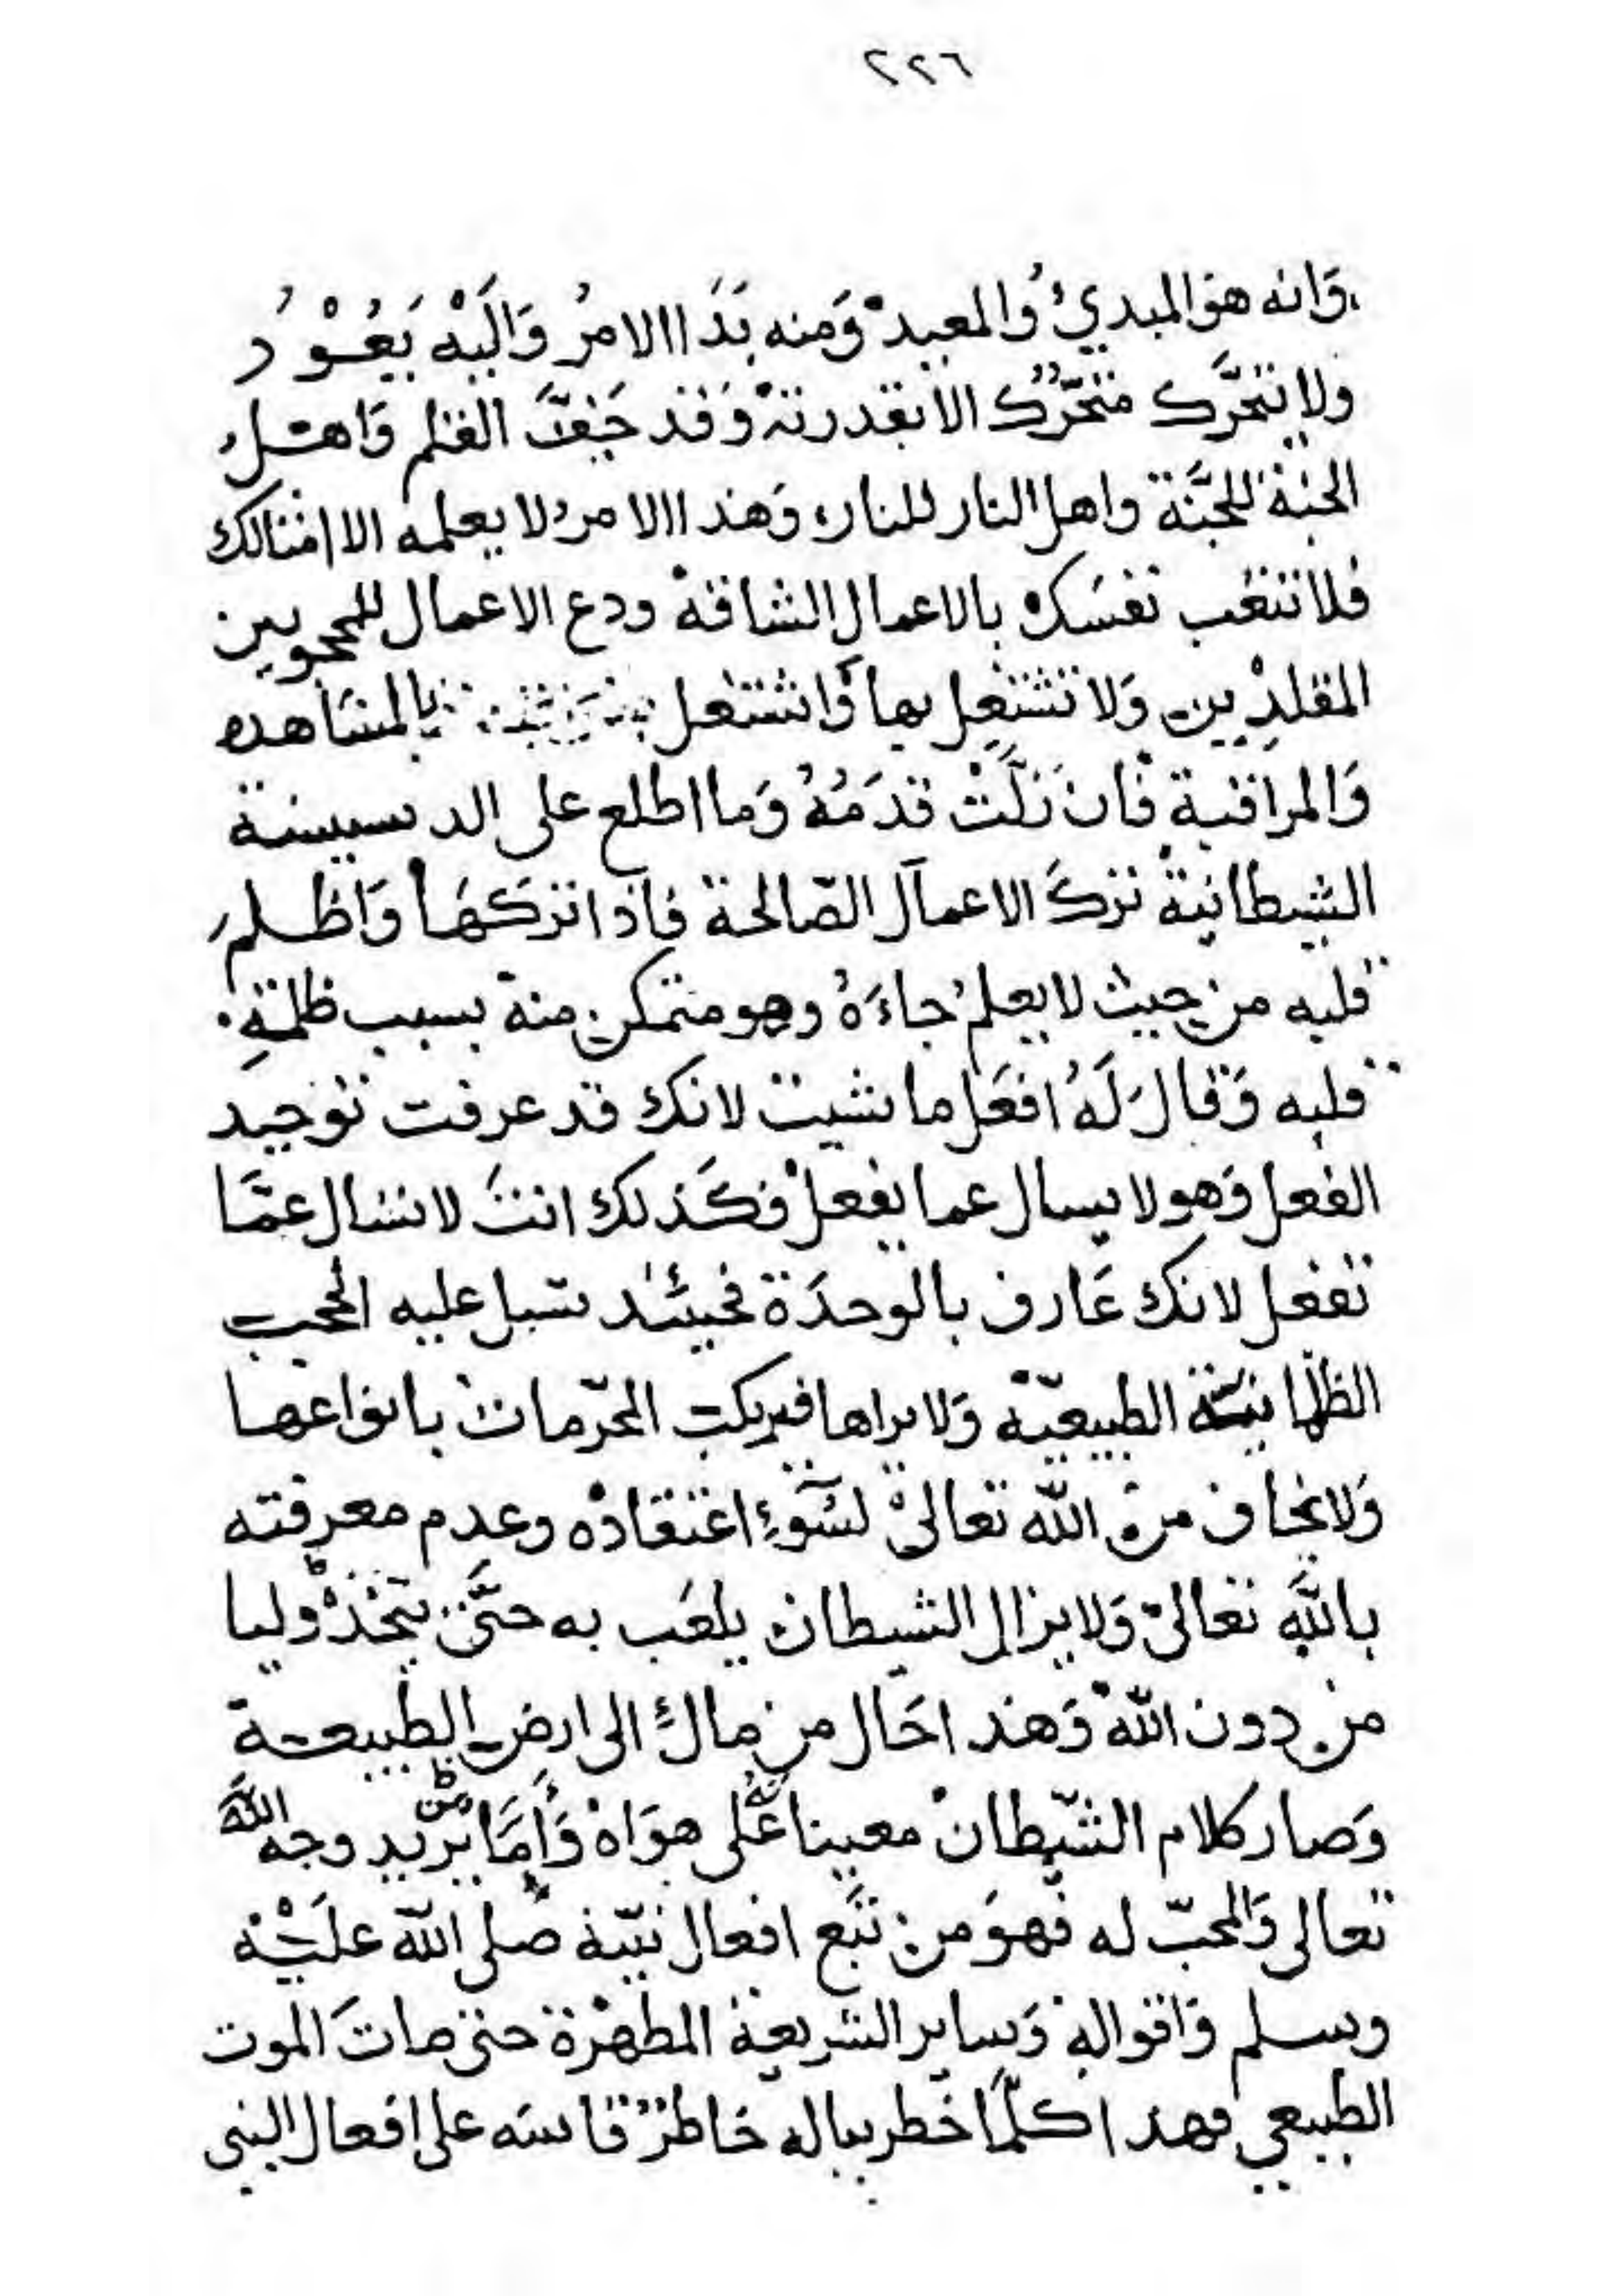 ٢٢٦
وَانه هوَ المبديُ وُالمعيد وَمنه بَدَا الامرُ وَالَيْه يَعُوْدُ
ولا يتحَّرك متحّرك الا بقدرته وَقد جَفَّ القلم وَاهل
الجنة للجَّنة واهل النار للنار وَهذا الامر لا يعلمه الا امثالك
فلا تتعب نفسَك بالاعمال الشاقة ودع الاعمال للمحجوبين
المقلدِين وَلا تشتغل بها وَاشتغل بالمشاهده
وَالمراقبة فان زَلَّتْ قدَمُهُ وَما اطلع على الدسيسة
الشيطانية تركَ الاعمال الصّالحة فاذا تركَهَا وَاظلم
قلبه من حيث لا يعلم جاءَهُ وهو متمكن منه بسبب ظلمةِ
قلبه وَقال لَهُ افعَل ما شيت لانك قد عرفت توحيد
الفعل وَهو لا يسال عما يفعل فكَذلك انتَ لا تسَال عمَّا
تفعل لانك عَارف بالوحدَة فحينئذ تسبل عليه الحجب
الظلمانيَّة الطبيعيّة وَلا يراها فيركب المحرّمات بانواعها
وَلا يخاف من الله تعالى لسُوءِ اعتقاده وعدم معرفته
باللَّهِ تعالى وَلا يزال الشيطان يلعَب به حتَّى يتخذه وليا
من دون الله وَهذا حَال من مال الى ارض الطبيعة
وَصار كلام الشّيطان معينا لهُ على هوَاه وَأمَّا من يريد وجه اللَّه
تعالى وَالمحبّ له فهوَ من تبَّع افعال نبيّه صلى اللّه علَيْه
وسلم وَاقواله وَساير الشريعة المطهّرة حتى ماتَ الموت
الطبيعي فهذا كلّمَا خَطر بباله خَاطرٌ قاسَه على افعال النبى